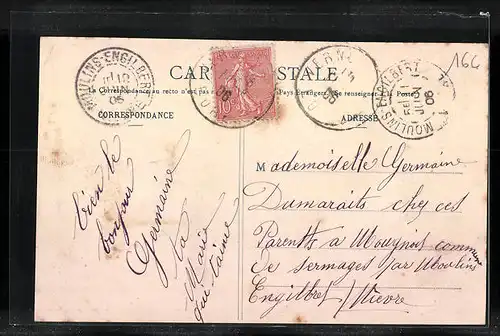 164
CARTE POSTALE
La Correspondance au recto n'est pas Pays Étrangers. Se renseigner à la Poste
CORRESPONDANCE
ADRESSE
MOULINS-ENGILBERT
06
MOULINS-ENGILBERT
JUIN
06
Bien le
bonjour
Germaine
ta
Marie
qui t'aime
Mademoiselle Germaine
Dumaraits chez ces
Parents a commune
De sermages par Moulins
Engilbert / Nievre